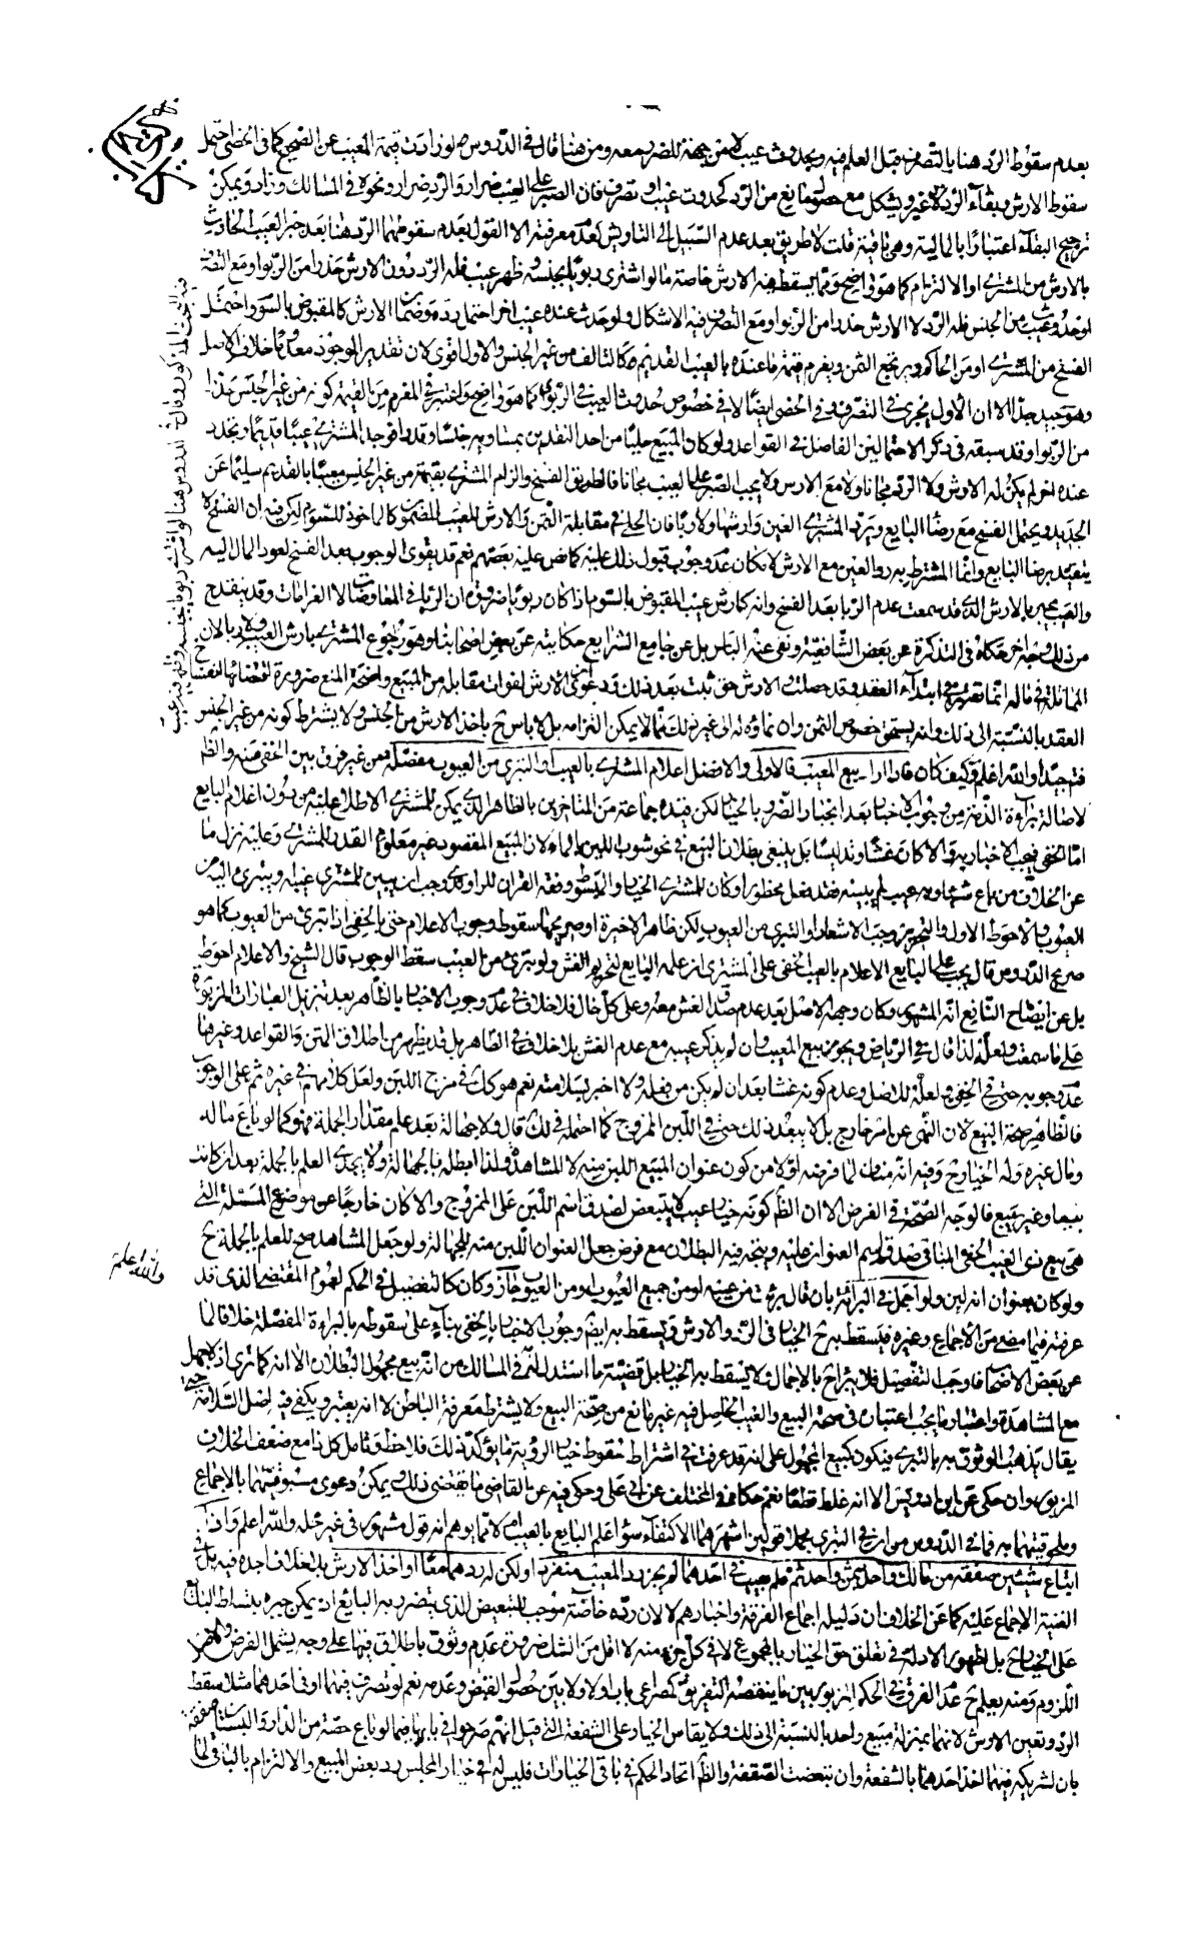 بعدم سقوط الرد هنا بالتصرف قبل العلم فيه وبحدوث عيب لا من جهته للضرر معه ومن هنا قال في الدروس لو زادت قيمة المعيب عن الصحيح كما في الخصي احتمل
سقوط الارش وبقاء الرد لا غير ويشكل مع حصول مانع من الرد كحدوث عيب او تصرف فان الصبر على العيب ضرار والرد ضرار ونحوه في المسالك وزاد ويمكن
ترجيح البقاء اعتبارا بالمالية وهي باقية قلت لا طريق بعد عدم السبيل الى التارش لعدم معرفته الا القول بعدم سقوط الرد هنا بعد جبر العيب الحادث
بالارش من المشتري او الالتزام كما هو واضح ومما يسقط فيه الارش خاصة ما لو اشترى ربويا بجنسه وظهر عيب فله الرد دون الارش حذرا من الربوا ومع التصرف
او حدوث عيب من الجنس فله الرد لا الارش حذرا من الربوا ومع التصرف فيه الاشكال ولو حدث عنده عيب اخر احتمل رده وضمان الارش كالمقبوض بالسوم واحتمل
الفسخ من المشتري او من الحاكم ويرتجع الثمن ويغرم قيمة ما عنده بالعيب القديم كالتالف من غير الجنس والاول اقوى لان تقدير الموجود معدوما خلاف الاصل
وهو جيد جدا الا ان الاول يجري في التصرف وفي الخصي ايضا لا في خصوص حدوث العيب في الربوي كما هو واضح واعتبر في المغرم من القيمة كونه من غير الجنس حذرا
من الربوا وقد سبقه في ذكر الاحتمالين الفاضل في القواعد ولو كان المبيع حليا من احد النقدين بمساويه جنسا وقدرا فوجد المشتري عيبا قديما وتجدد
عنده اخر لم يكن له الارش ولا الرد مجانا ولا مع الارش ولا يجب الصبر على العيب مجانا فالطريق الفسخ والزام المشتري بقيمته من غير الجنس معيبا بالقديم سليما عن
الجديد ويحتمل الفسخ مع رضا البايع ويرد المشتري العين وارشها ولا ربا فان الحلي في مقابلة الثمن والارش للعيب المضمون كالماخوذ للسوم لكن فيه ان الفسخ لا
يتقيد برضا البايع وانما المشترط به رد العين مع الارش لامكان عدم وجوب قبول ذلك عليه كما نص عليه بعضهم نعم قد يقوى الوجوب بعد الفسخ لعود المال اليه
والعيب يجبر بالارش الذي قد سمعت عدم الربا بعد الفسخ وانه كارش عيب المقبوض بالسوم اذا كان ربويا ضرورة ان الربا في المعاوضات لا الغرامات وقد ينقدح
من ذلك وجه اخر حكاه في التذكرة عن بعض الشافعية ونفى عنه الباس بل عن جامع الشرايع حكايته عن بعض اصحابنا وهو رجوع المشتري بارش العيب القديم لان
المماثلة في ماله انما تعتبر في ابتداء العقد وقد حصلت والارش حق ثبت بعد ذلك ودعوى ان الارش لفوات مقابله من المبيع واضحة المنع ضرورة اقتضائها انفساخ
العقد بالنسبة الى ذلك وانه يستحق خصوص الثمن وان نماؤه له الى غير ذلك مما لا يمكن التزامه بل لا باس ح باخذ الارش من الجنس ولا يشترط كونه من غير الجنس
فتم جيدا والله اعلم وكيف كان فاذا اراد بيع المعيب فالاولى والافضل اعلام المشتري بالعيب او التبري من العيوب مفصلة من غير فرق بين الخفي منه والظاهر
لاصالة براءة الذمة من وجوب الاخبار بعد انجبار الضرر بالخيار لكن قيده جماعة من المتاخرين بالظاهر الذي يمكن للمشتري الاطلاع عليه من دون اعلام البايع
اما الخفي فيجب الاخبار به والا كان غشا وتدليسا بل ينبغي بطلان البيع في نحو شوب اللبن بالماء لان المبيع المقصود غير معلوم القدر للمشتري وعليه نزل ما
عن الخلاف من باع شيئا وبه عيب لم يبينه فقد فعل محظورا وكان للمشتري الخيار والمبسوط وفقه القران للراوندي وجب ان يبين للمشتري عيبه ويتبرى اليه من
العيوب والاحوط الاول والتحرير وجب الاشعار او التبري من العيوب لكن ظاهر الاخيرة او صريحها سقوط وجوب الاعلام حتى بالخفي اذا تبرى من العيوب كما هو
صريح الدروس قال يجب على البايع الاعلام بالعيب الخفي على المشتري ان علمه البايع لتحريم الغش ولو تبرى من العيب سقط الوجوب قال الشيخ والاعلام احوط
بل عن ايضاح النافع انه المشهور وكان وجهه الاصل بعد عدم صدق الغش معه وعلى كل حال فلا خلاف في عدم وجوب الاخبار بالظاهر بعد تنزيل العبارات المزبورة
على ما سمعت ولعله لذا قال في الرياض ويجوز بيع المعيب وان لم يذكر عيبه مع عدم الغش بلا خلاف في الظاهر بل قد يظهر من اطلاق المتن والقواعد وغيرهما
عدم وجوبه حتى في الخفي ولعله للاصل وعدم كونه غشا بعد ان لم يكن من فعله ولا اخبر بسلامته نعم هو كك في مزج اللبن ولعل كلامهم في غيره ثم على الوجوب
فالظاهر صحة البيع لان النهي عن امر خارج بل لا يبعد ذلك حتى في اللبن الممزوج كما احتمله في لك قال ولا جهالة بعد علم مقدار الجملة فهو كما لو باع ماله
ومال غيره وله الخيار ح وفيه انه مناف لما فرضه اولا من كون عنوان المبيع اللبن منه لا المشاهد ولذا ابطله بالجهالة ولا يجدي العلم بالجملة بعد ان كان
مبيعا وغير مبيع فالوجه الصحة في الفرض الا ان الظ كونه خيار عيب لا تبعض لصدق اسم اللبن على الممزوج والا كان خارجا عن موضوع المسئلة التي
هي بيع ذي العيب الخفي المنافي صدق اسم العنوان عليه ويتجه فيه البطلان مع فرض جعل العنوان اللبن منه للجهالة ولو جعل المشاهد صح للعلم بالجملة ح
ولو كان بعنوان انه لبن ولو اجمل في البرائة بان قال برئت من عيبه او من جميع العيوب او من العيوب جاز وكان كالتفصيل في الحكم لعموم المقتضى الذي قد
عرفته فيما مضى من الاجماع وغيره فيسقط به ح الخيار في الرد والارش ويسقط به ايضا وجوب الاخبار بالخفي بناء على سقوطه بالبراءة المفصلة خلافا لما
عن بعض الاصحاب فاوجب التفصيل فلا تبرا ح بالاجمال ولا يسقط به الخيار بل قضية ما استدل له في المسالك من انه بيع مجهول البطلان الا انه كما ترى اذ لا جهل
مع المشاهدة واعتبار ما يجب اعتباره في صحة البيع والعيب الحاصل فيه غير مانع من صحة البيع ولا يشترط معرفة الباطن لا انه يعتبر ويكفي فيه اصل السلامة حتى
يقال يذهب الوثوق به بالتبري فيكون كبيع المجهول على انه قد عرفت في اشتراط سقوط خيار الرؤية ما يؤكد ذلك فلاحظ وتامل كل ذا مع ضعف الخلاف
المزبور وان حكي عن ابن ادريس الا انه غلط قطعا نعم حكاه في المختلف عن ابي علي وحكى فيه عن القاضي ما يقتضي ذلك ويمكن دعوى مسبوقيتهما بالاجماع
وملحوقيتهما به فما في الدروس من ان في التبري مجملا قولين اشهرهما الاكتفاء سواء علم البايع بالعيب ام لا مما يوهم انه قول مشهور في غير محله والله اعلم واذا
ابتاع شيئين صفقة من مالك واحد بثمن واحد ثم علم بعيب في احدهما لم يجز رد المعيب منفردا ولكن له ردهما معا او اخذ الارش بلا خلاف اجده فيه بل في
الغنية الاجماع عليه كما عن الخلاف ان دليله اجماع الفرقة واخبارهم لا لان رده خاصة موجب للتبعيض الذي يتضرر به البايع اذ يمكن جبره بتسلط البايع
على الخيار ح بل لظهور الادلة في تعلق حق الخيار بالمجموع لا في كل جزء منه لا اقل من الشك ضرورة عدم وثوق باطلاق فيها على وجه يشمل الفرض والاصل
اللزوم ومنه يعلم ح عدم الفرق في الحكم المزبور بين ما ينقصه التفريق كمصراعي باب اولا ولا بين حصول القبض وعدمه نعم لو تصرف فيهما او في احدهما مثلا سقط
الرد وتعين الارش لانهما بمنزلة مبيع واحد بالنسبة الى ذلك ولا يقاس الخيار على الشفعة التي قيل انهم صرحوا في بابها فيما لو باع حصة من الدار والبستان صفقة
بان لشريكه فيهما اخذ احدهما بالشفعة وان تبعضت الصفقة والظ اتحاد الحكم في باقي الخيارات فليس له في خيار المجلس رد بعض المبيع والالتزام بالباقي لما
والله اعلم